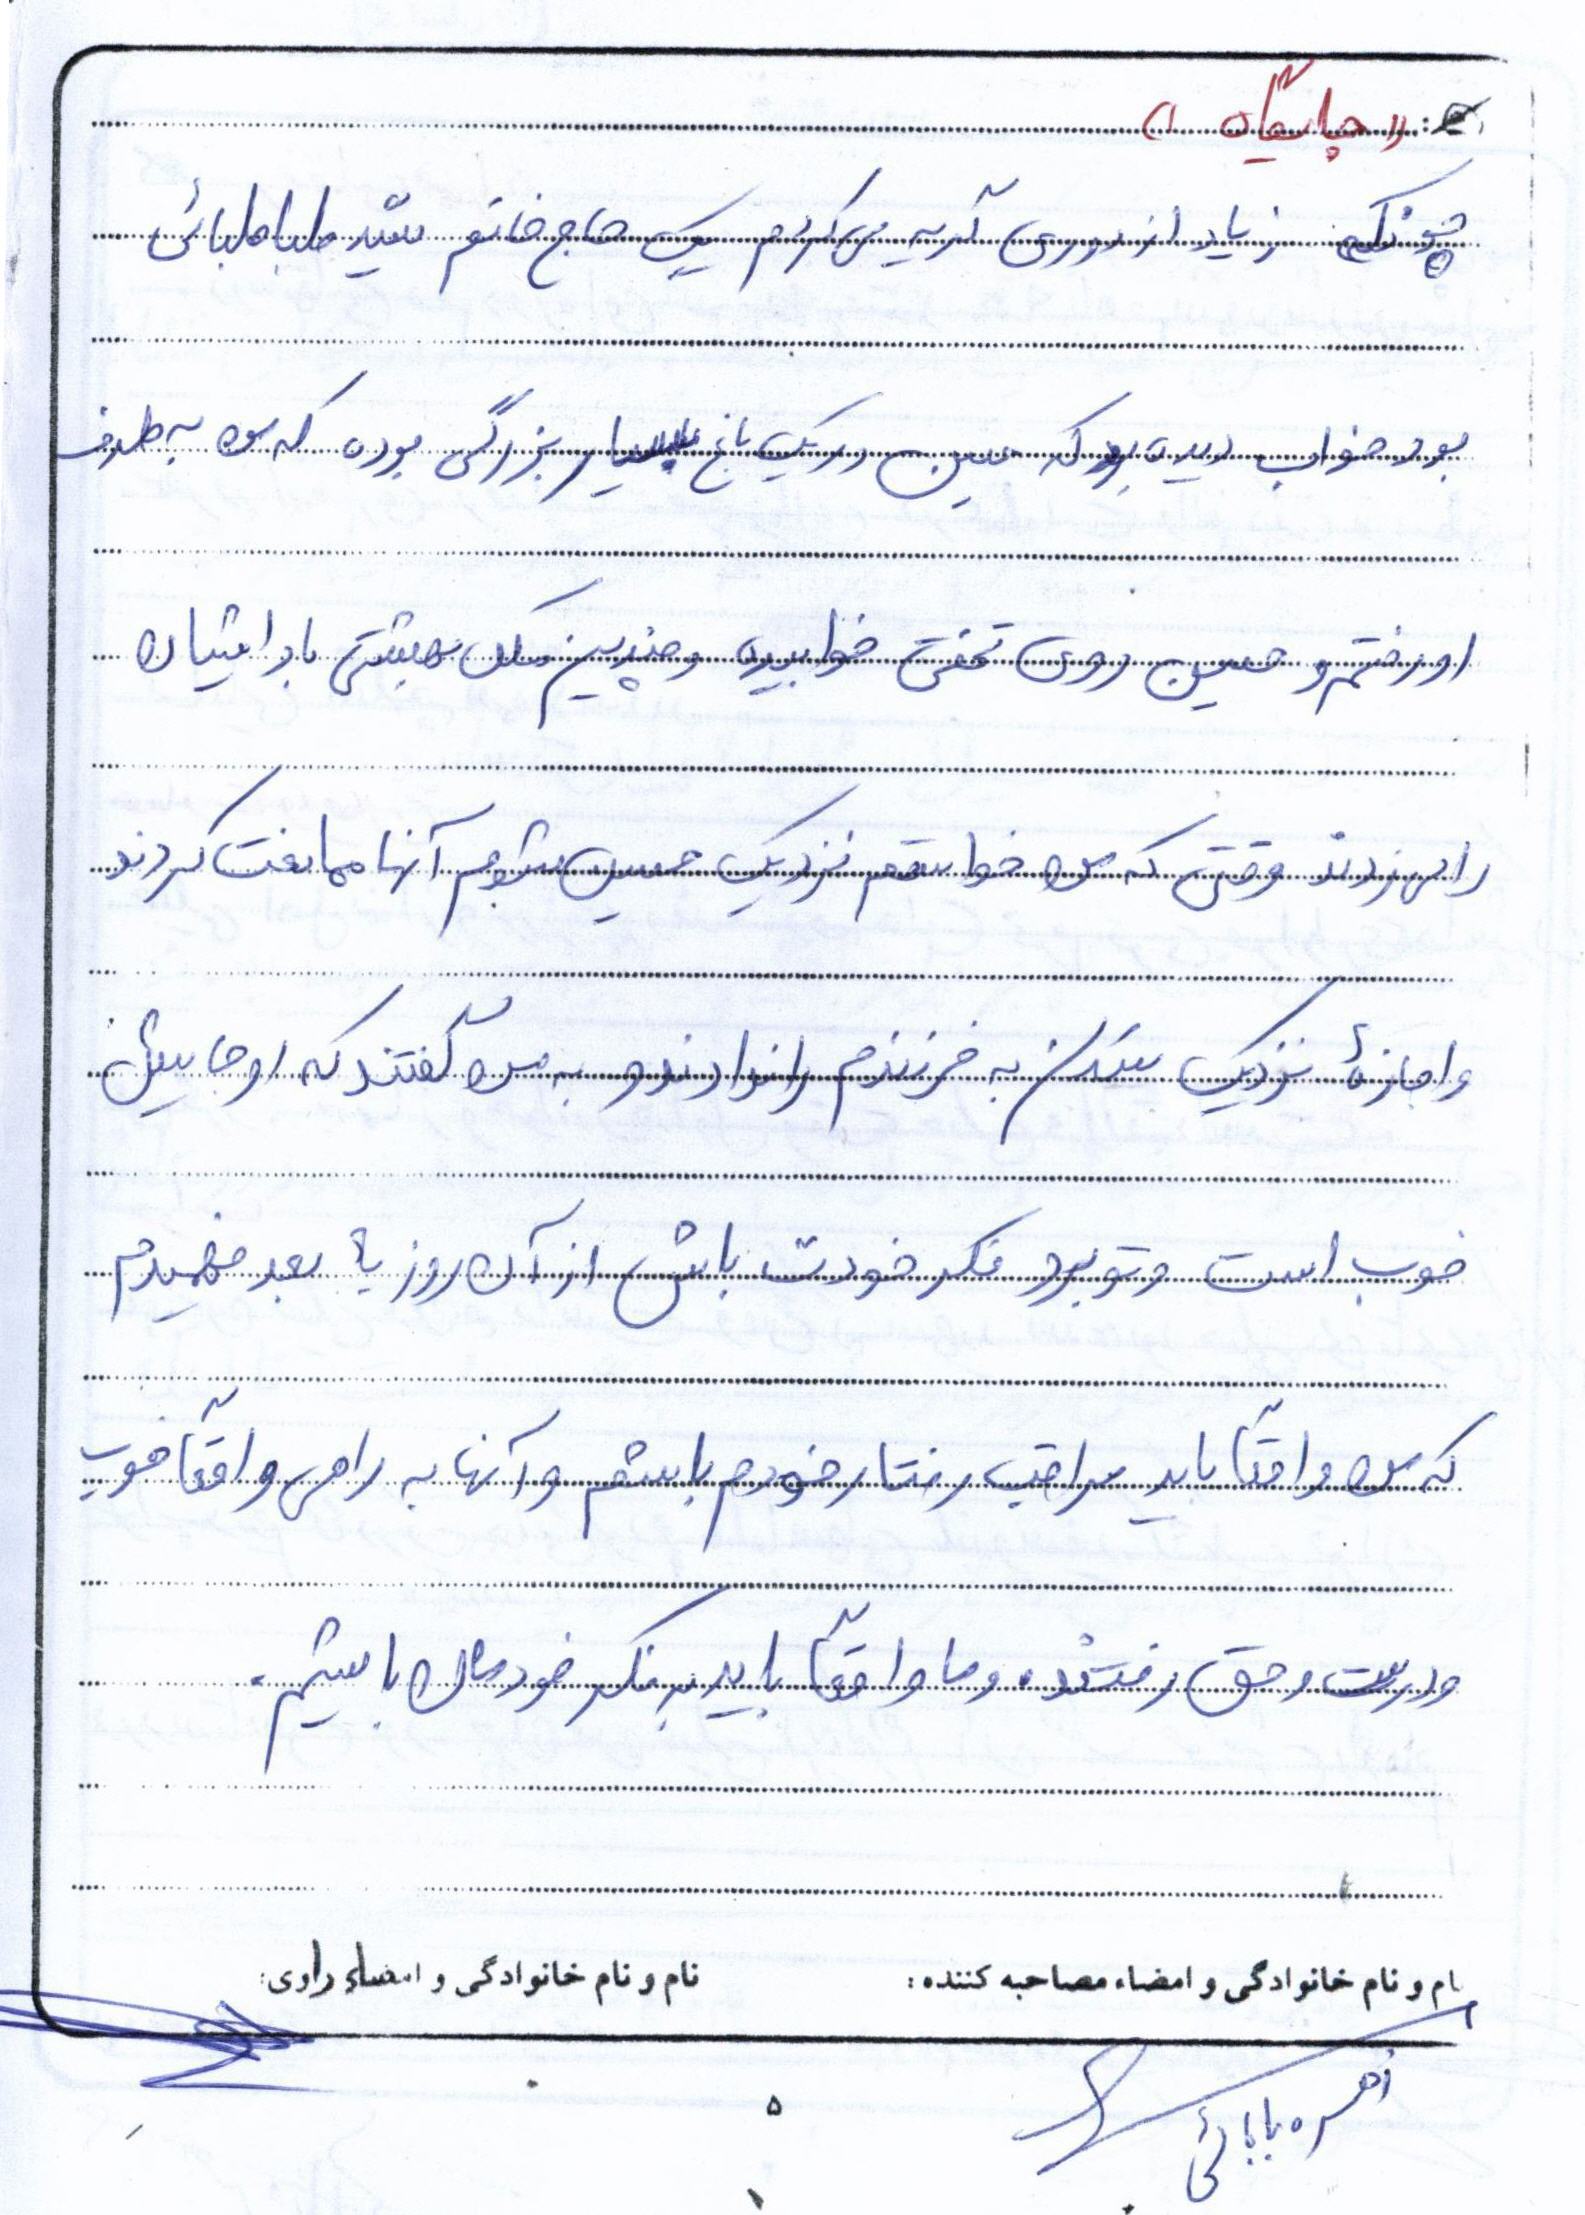 «جایگاه»
چونکه زیاد از دوری گریه می کردم یک حاج خانم سّید طباطبائی
بود خواب دیده بود که حسین در یک باغ بسیار بزرگی بوده که من به طرف
او رفتم و حسین روی تختی خوابیده و چندین ملک بهشتی باد ایشان
را می زدند وقتی که من خواستم نزدیک حسین شوم آنها ممانعت کردند
و اجازهٔ نزدیک شدن به فرزندم را ندادند و به من گفتند که او جایش
خوب است و تو برو فکر خودت باش از آن روز به بعد فهمیدم
که من واقعّا باید مراقب رفتار خودم باشم و آنها به راهی واقعّا خوب
و درست و حق رفتند و ما واقعّا باید به فکر خودمان باشیم.
نام و نام خانوادگی و امضاء مصاحبه کننده:
نام و نام خانوادگی و امضاء راوی:
زهره بابائی
۵